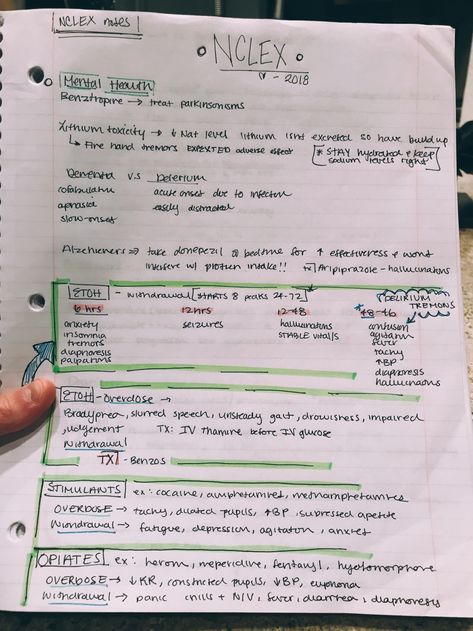 NCLEX notes
NCLEX
- 2018
Mental Health
Benztropine → treat parkinsonisms
Lithium toxicity → ↓ Na+ level lithium isnt excreted so have build up
↳ Fine hand tremors EXPECTED adverse effect
* STAY hydrated & keep sodium levels right
Dementia v.s Delerium
confabulation acute onset due to infection
aphasia easily distracted
slow-onset
Alzheimers → take donepezil @ bedtime for ↑ effectiveness & wont
interfere w/ protien intake!! tx Aripiprazole - hallucinations
ETOH - withdrawal [STARTS 8 peaks 24-72] DELIRIUM TREMONS
6 hrs 12 hrs 12-48 * 48-96
anxiety seizures hallucinations confusion
insomnia STABLE vitals agitation
tremors fever
diaphoresis tachy
palpations ↑BP
diaphoresis
hallucinations
ETOH - Overdose →
Bradypnea, slurred speech, unsteady gait, drowisness, impaired
judgement TX: IV thamine before IV glucose
Withdrawal
TX - Benzos
STIMULANTS ex: cocaine, amphetamines, methamphetamines
OVERDOSE → tachy, dilated pupils, ↑BP, supressed apetite
Withdrawal → fatigue, depression, agitation, anxiety
OPIATES ex: heroin, meperidine, fentanyl, hydromorphone
OVERDOSE → ↓RR, constricted pupils, ↓BP, euphoria
Withdrawal → panic chills + N/V, fever, diarrhea, diaphoresis